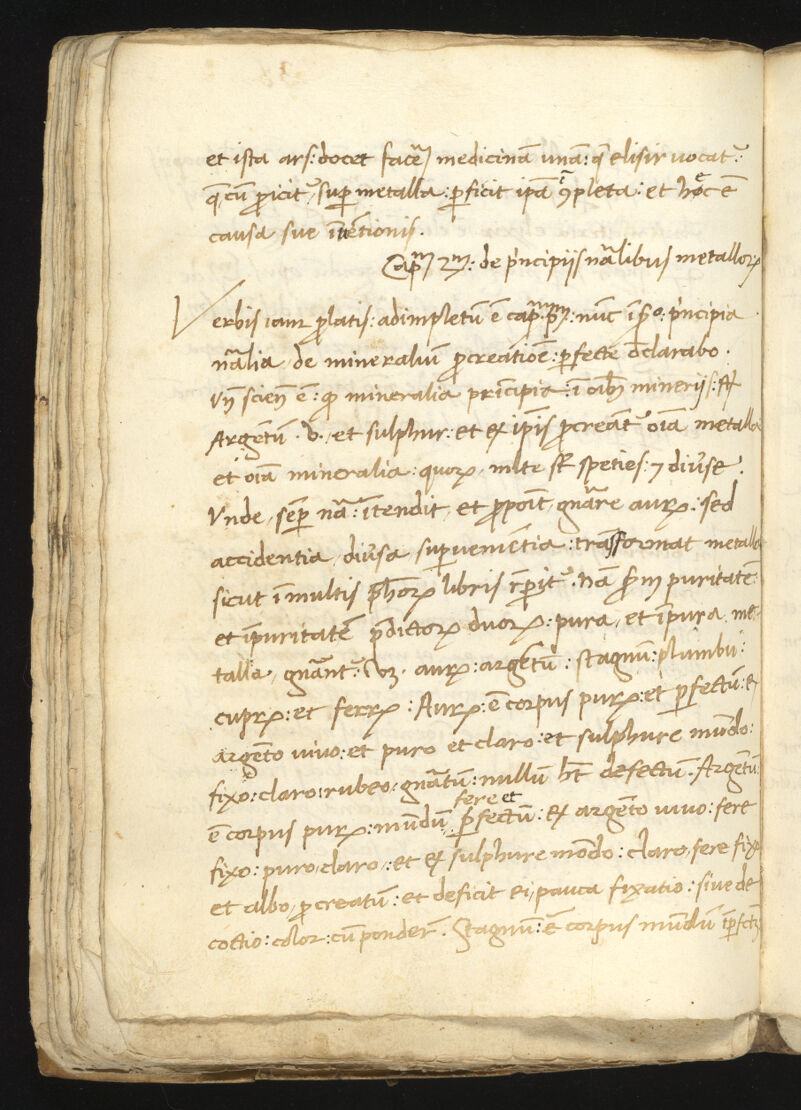 et ista ars: docet facē medicinā unā: q̄ elisir uocat᷑:
q̄ cū proicit᷑, sup̄ metalla: perficit ipā ꝯpleta: et hoc ē
causa sue ītētionis.
Capm̄ 2m̄: de pʳncipijs nālibus metalloꝝ
Verbis iam prolatis: adimpletū ē capm̄ pm̄: nūc ī 2o. pʳncipia
nālia, de mineraliū procreatiōē: perfecte dclarabo.
Vn̄ scien̄ ē: q̄ mineralia principia: ī oībȝ minerijs: st̄
Argētū. v., et sulphur: et ex ip̄is procreāt᷑ oīa metalla
et oīa mineralia: quoꝝ, mlte st̄ speties: ⁊ diūse.
Vnde, semp̄ nā: ītendit, et propoīt, gnāre auꝝ: sed
accidentia, diūsa, sup̄ueniētia: trāsformat metalla
sicut ī multis ph̄oꝝ libris rep̄it᷑. Nā 2m puritatē:
et īpuritatē p̄dictoꝝ duoꝝ: pura, et īpura, me-
talla, gnānt᷑. Vꝫ. auꝝ: argētū: stagnū: plūmbū:
cupꝝ: et ferꝝ: Auꝝ: ē corpus puꝝ: et perfectū: ex
argēto uiuo: et puro et claro: et sulphure mūdo:
fixo: claro: rubeo, gnātū: nullū ht̄ defectū. Argētū
ē corpus puꝝ: mūdū fere et perfectū: ex argēto uiuo: fere
fixo: puro, claro,: et ex sulphure mōdo: claro, fere fixo
et albo, procreatū: et deficit ei, pauca fixatio: siue de
coctio: color: cū pondeŕ. Stagnū: ē corpus mūdū īperfctū